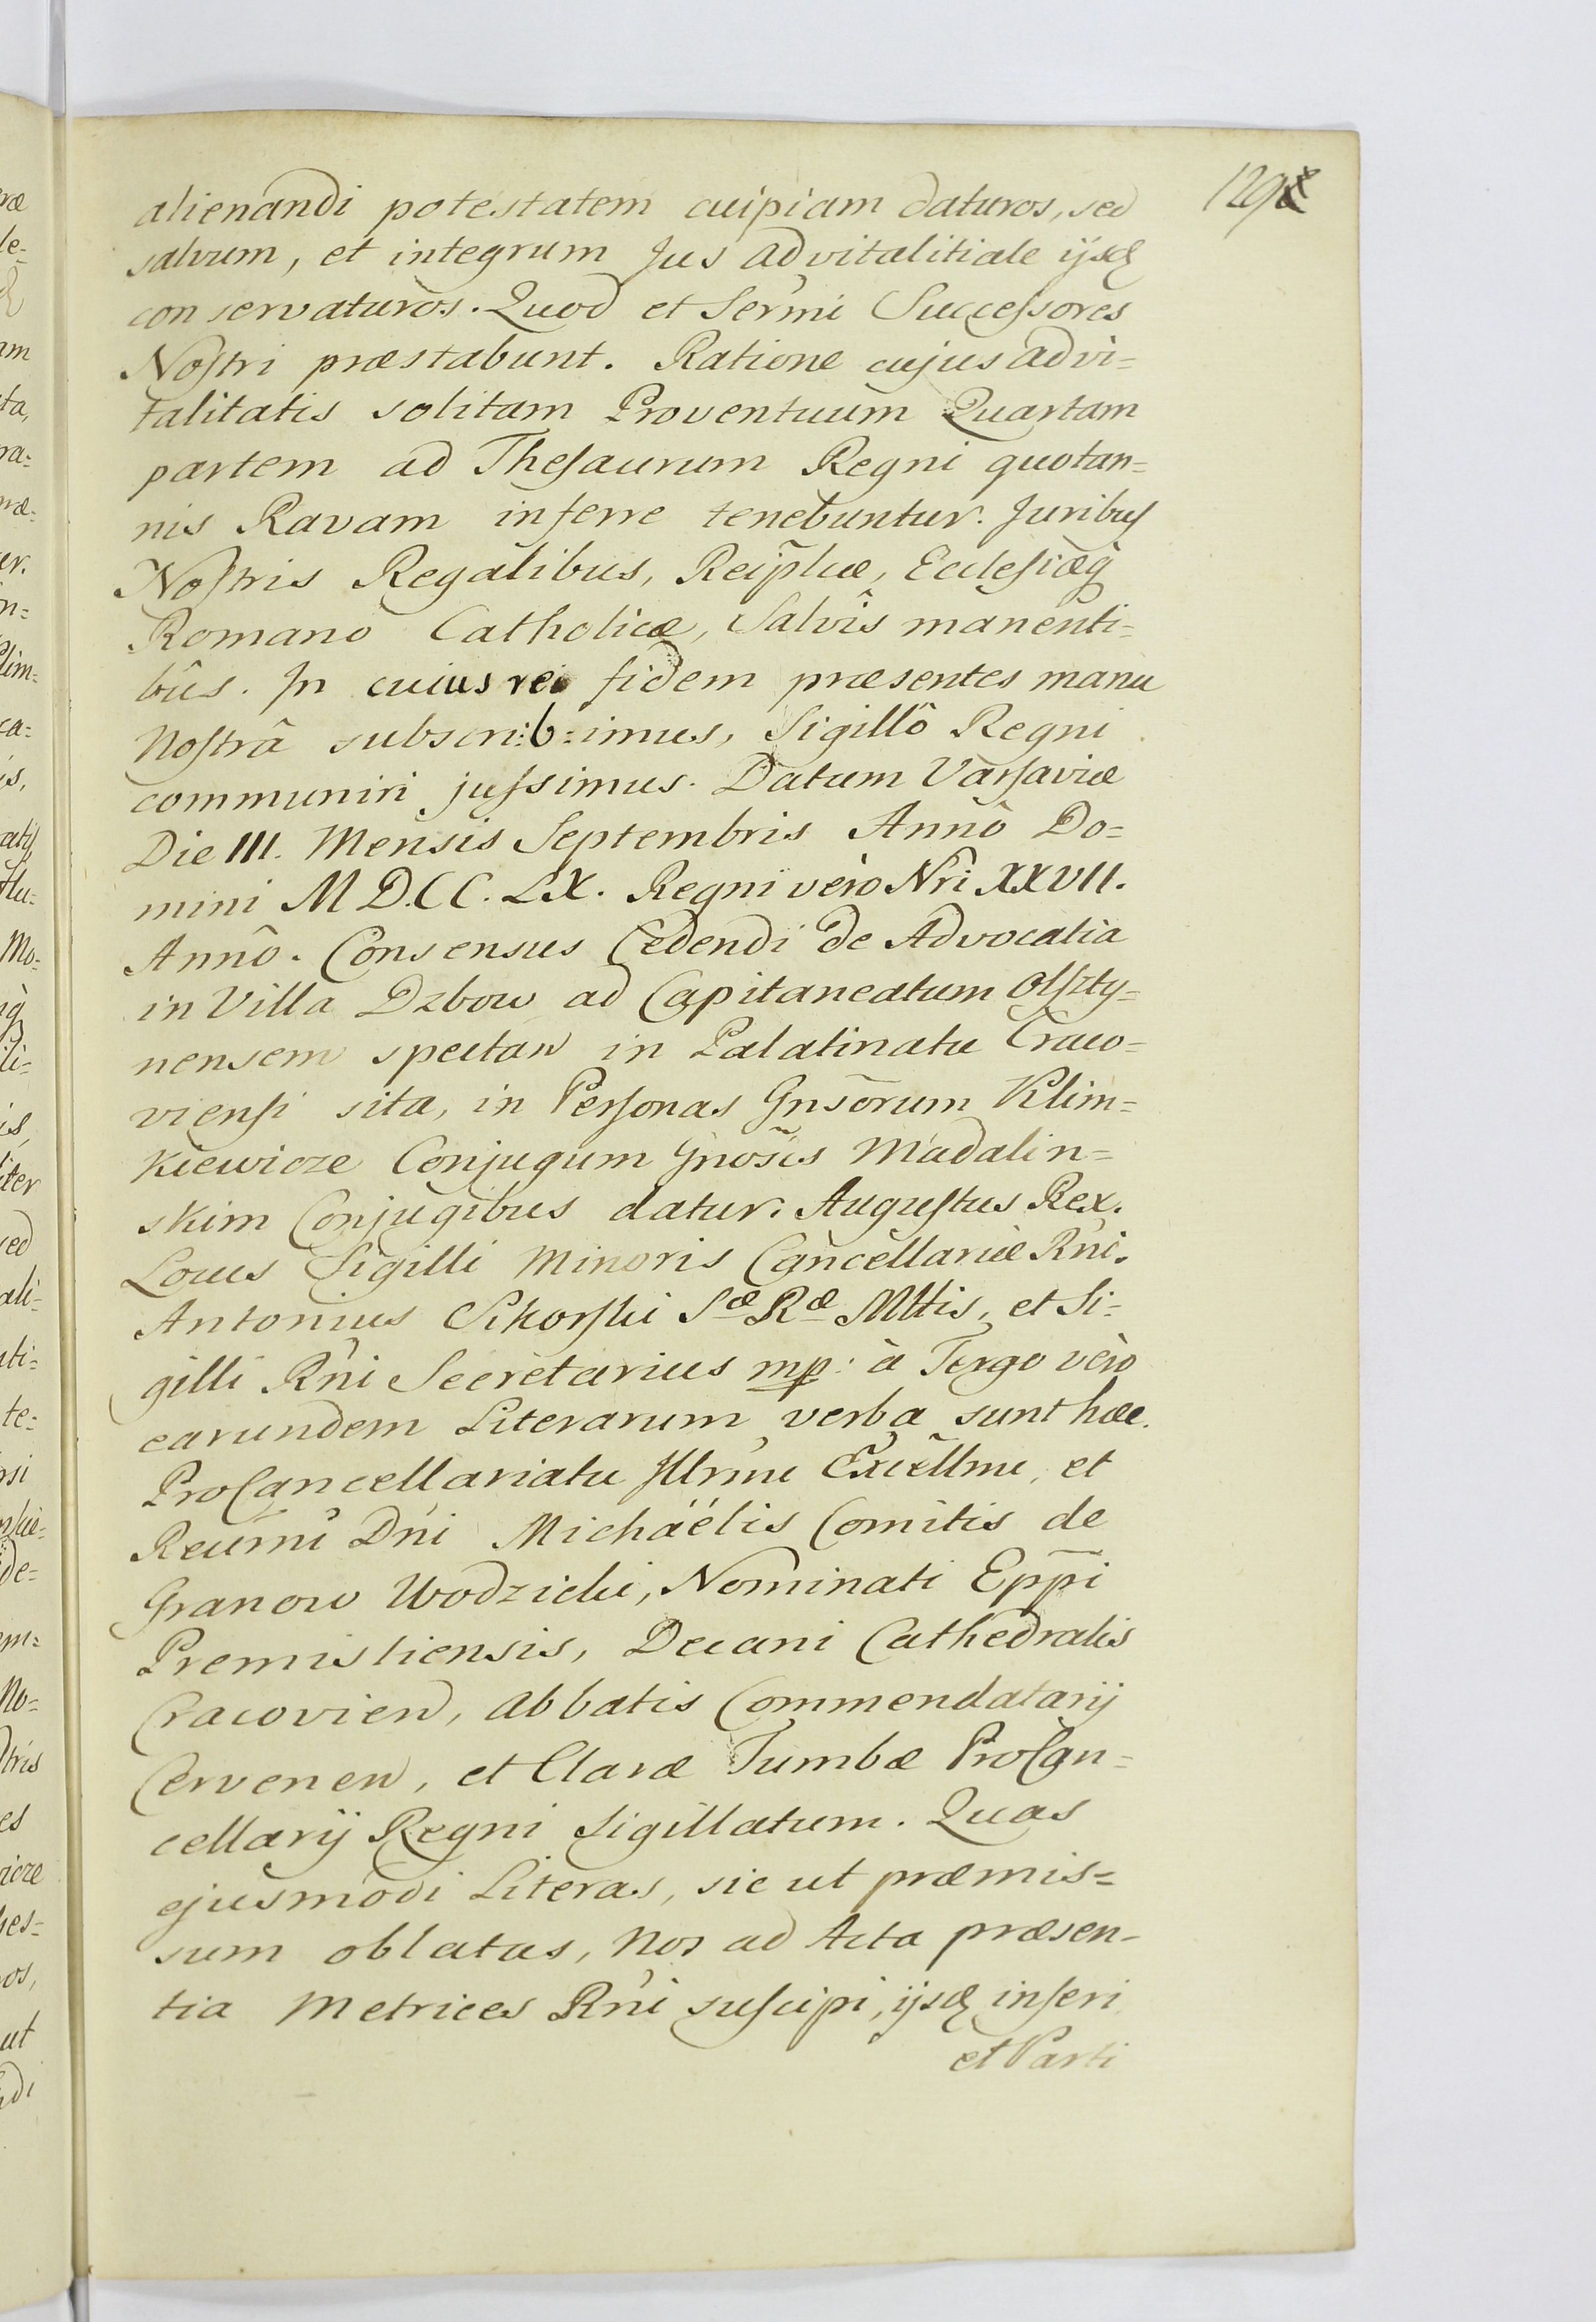 129
alienandi potestatem cuipiam daturos, sed
salvum, et integrum Jus advitalitiale ijsq
conservaturos. Quod et Sermi Successores
Nostri præstabunt. Ratione cujus advi=
talitatis solitam Proventuum Quartam
partem ad Thesaurum Regni quotan=
nis Ravam inferre tenebuntur. Juribus
Nostris Regalibus, Reiplcæ, Ecclesiæq
Romano Catholicæ, Salvis manenti=
bûs. In cuius rei fidem præsentes manu
Nostrâ subscri:b:imus, Sigillô Regni
communiri jussimus. Datum Varsaviæ
Die III. Mensis Septembris Annô Do=
mini M D.CC.LX. Regni vero Nri XXVII.
Annô. Consensus Cedendi de Advocatia
in Villa Dzbow ad Capitaneatum Olszty=
nensem spectan in Palatinatu Craco=
viensi sita, in Personas Gnsorum Klim=
kiewicze Conjugum Gnosis Madalin=
skim Conjugibus datur. Augustus Rex.
Locus Sigilli Minoris Cancellariæ Rni.
Antonius Sikorski Sæ Ræ Mttis, et Si=
gilli Rni Secretarius mp: à Tergo vero
earundem Literarum verba sunt hæc.
ProCancellariatu Illrmi Excellmi, et
Reumi Dni Michaélis Comitis de
Granow Wodzicki, Nominati Eppi
Premisliensis, Decani Cathedralis
Cracovien, Abbatis Commendatarij
Cervenen, et Claræ Tumbæ ProCan=
cellarij Regni Sigillatum. Quas
ejusmodi Literas, sic ut præmis=
sum oblatas, Nos ad Acta præsen=
tia Metrices Rni suscipi, ijsq inseri
et Parti